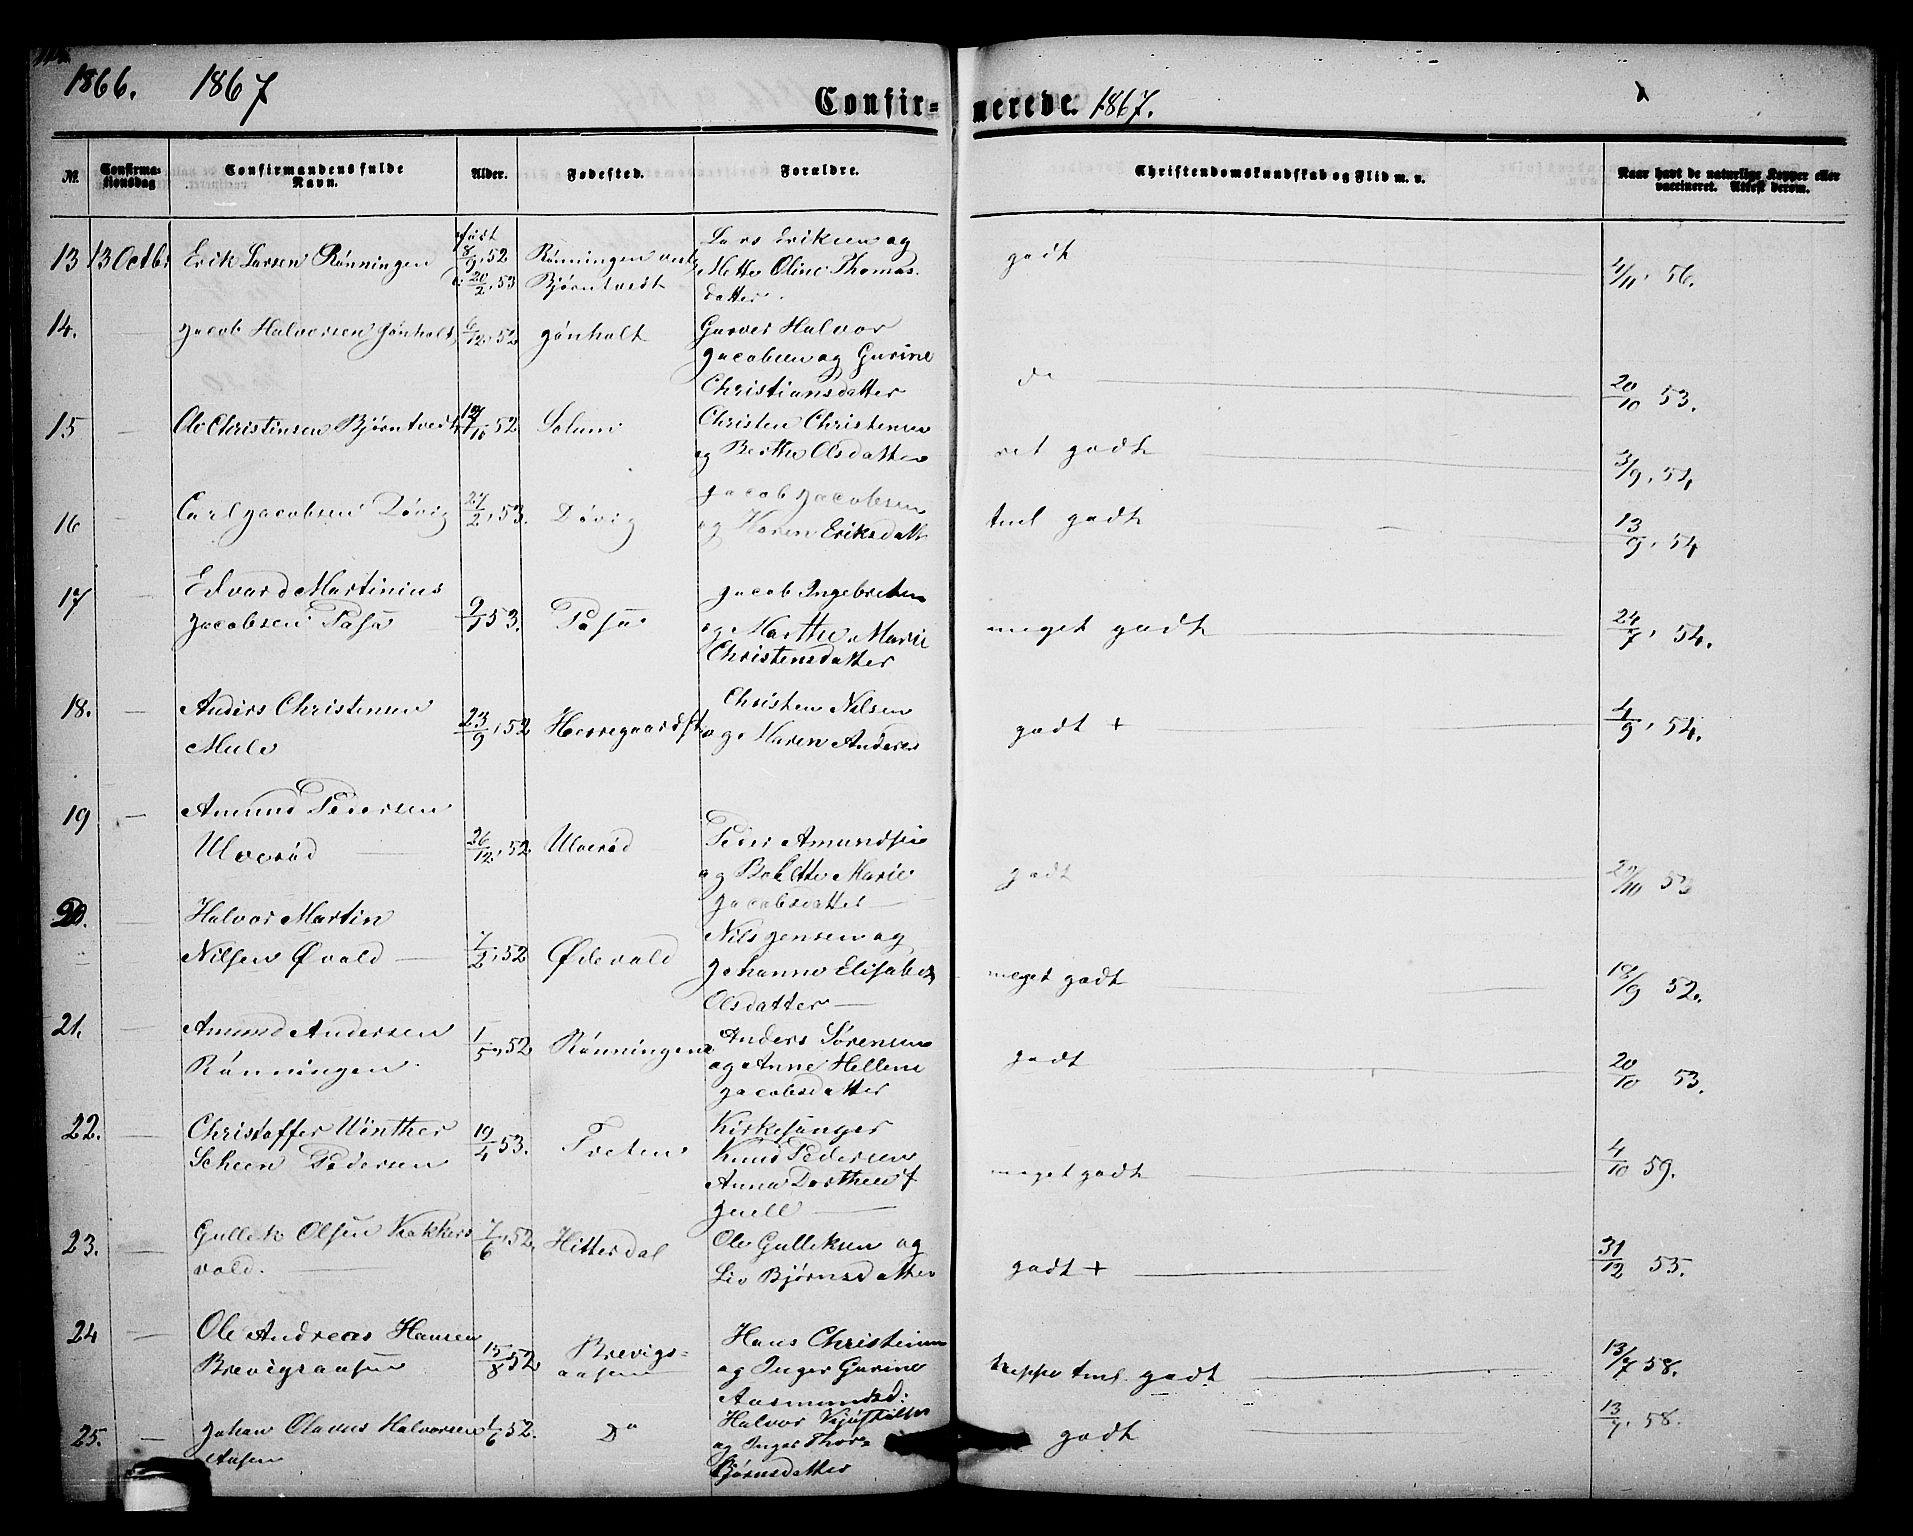 1866. 1867
Confir= merede. 1867.
№ Confirma- tionsdag Confirmandens fulde Navn. Alder. Fødested. Forældre. Christendomskundskab og Flid m. v. Naar havt de naturlige Kopper eller vaccineret. Attest derom.
13 13 Octbr Erik Larsen Rönningen født 8/9, 52 Rönningen Lars Eriksen og godt 4/11, 56.
20/2, 53 Bjørntvedt Mette Oline Thomas-
datter.
14. — Jacob Halversen Gönholt 6/12, 52 Gönholt Garver Halvor do 20/10 53.
Jacobsen og Gurine
Christiansdatter
15 — Ole Christensen Bjørntvedt 52 Solum Christen Christensen ret godt 3/9, 54
og Berthe Olsdatter
16 Carl Jacobsen Dövig 27/2, 53. Dövig Jacob Jacobsen tml godt 13/9, 54
og Karen Eriksdatt
17 — Edvard Martinius Jacob Ingebretsen
Jacobsen Tafsa 53. Tafsa og Marthe Marie meget godt 24/7, 54.
Christensdatter
18. — Anders Christensen 23/9, 52 Herregaardst Christen Nilsen godt + 4/9, 54.
Mule og Maren Anders
19 — Amund Pedersen
Ulverød 26/12, 52 Ulverød Peder Amundsen godt 53
og Bolette Marie
Jacobsdatter
20. Halvor Martin Nils Jensen og
Nilsen Øvald 7/2, 52 Ødevald Johanne Elisabeth meget godt 18/9 52.
Olsdatter
21. — Amund Andersen 1/5, 52 Rönningen Anders Sörensen godt 20/10 53.
Rønningen og Anne Hellene
Jacobsdatter
22. — Christoffer Winther 19/4 53. Treten Kirkesanger meget godt 4/10 59.
Scheen Pedersen Knud Pedersen
Anna Dorthea f
Juell
23. — Gullek Olsen Kokkers 7/6, 52. Hitterdal Ole Gulleksen og godt + 31/12 53.
vold. Liv Bjørnsdatter
24 — Ole Andreas Hansen 15/8 52. Brevigs- Hans Christensen 13/7 58.
Brevigsaasen aasen og Inger Gurine neppe tml. godt
Aasmundsd:
25. — Johan Olavus Halvorsen 1/6 52. Do Halvor godt 13/7, 58.
Aasen og Inger Thor-
Bjørnsdatter